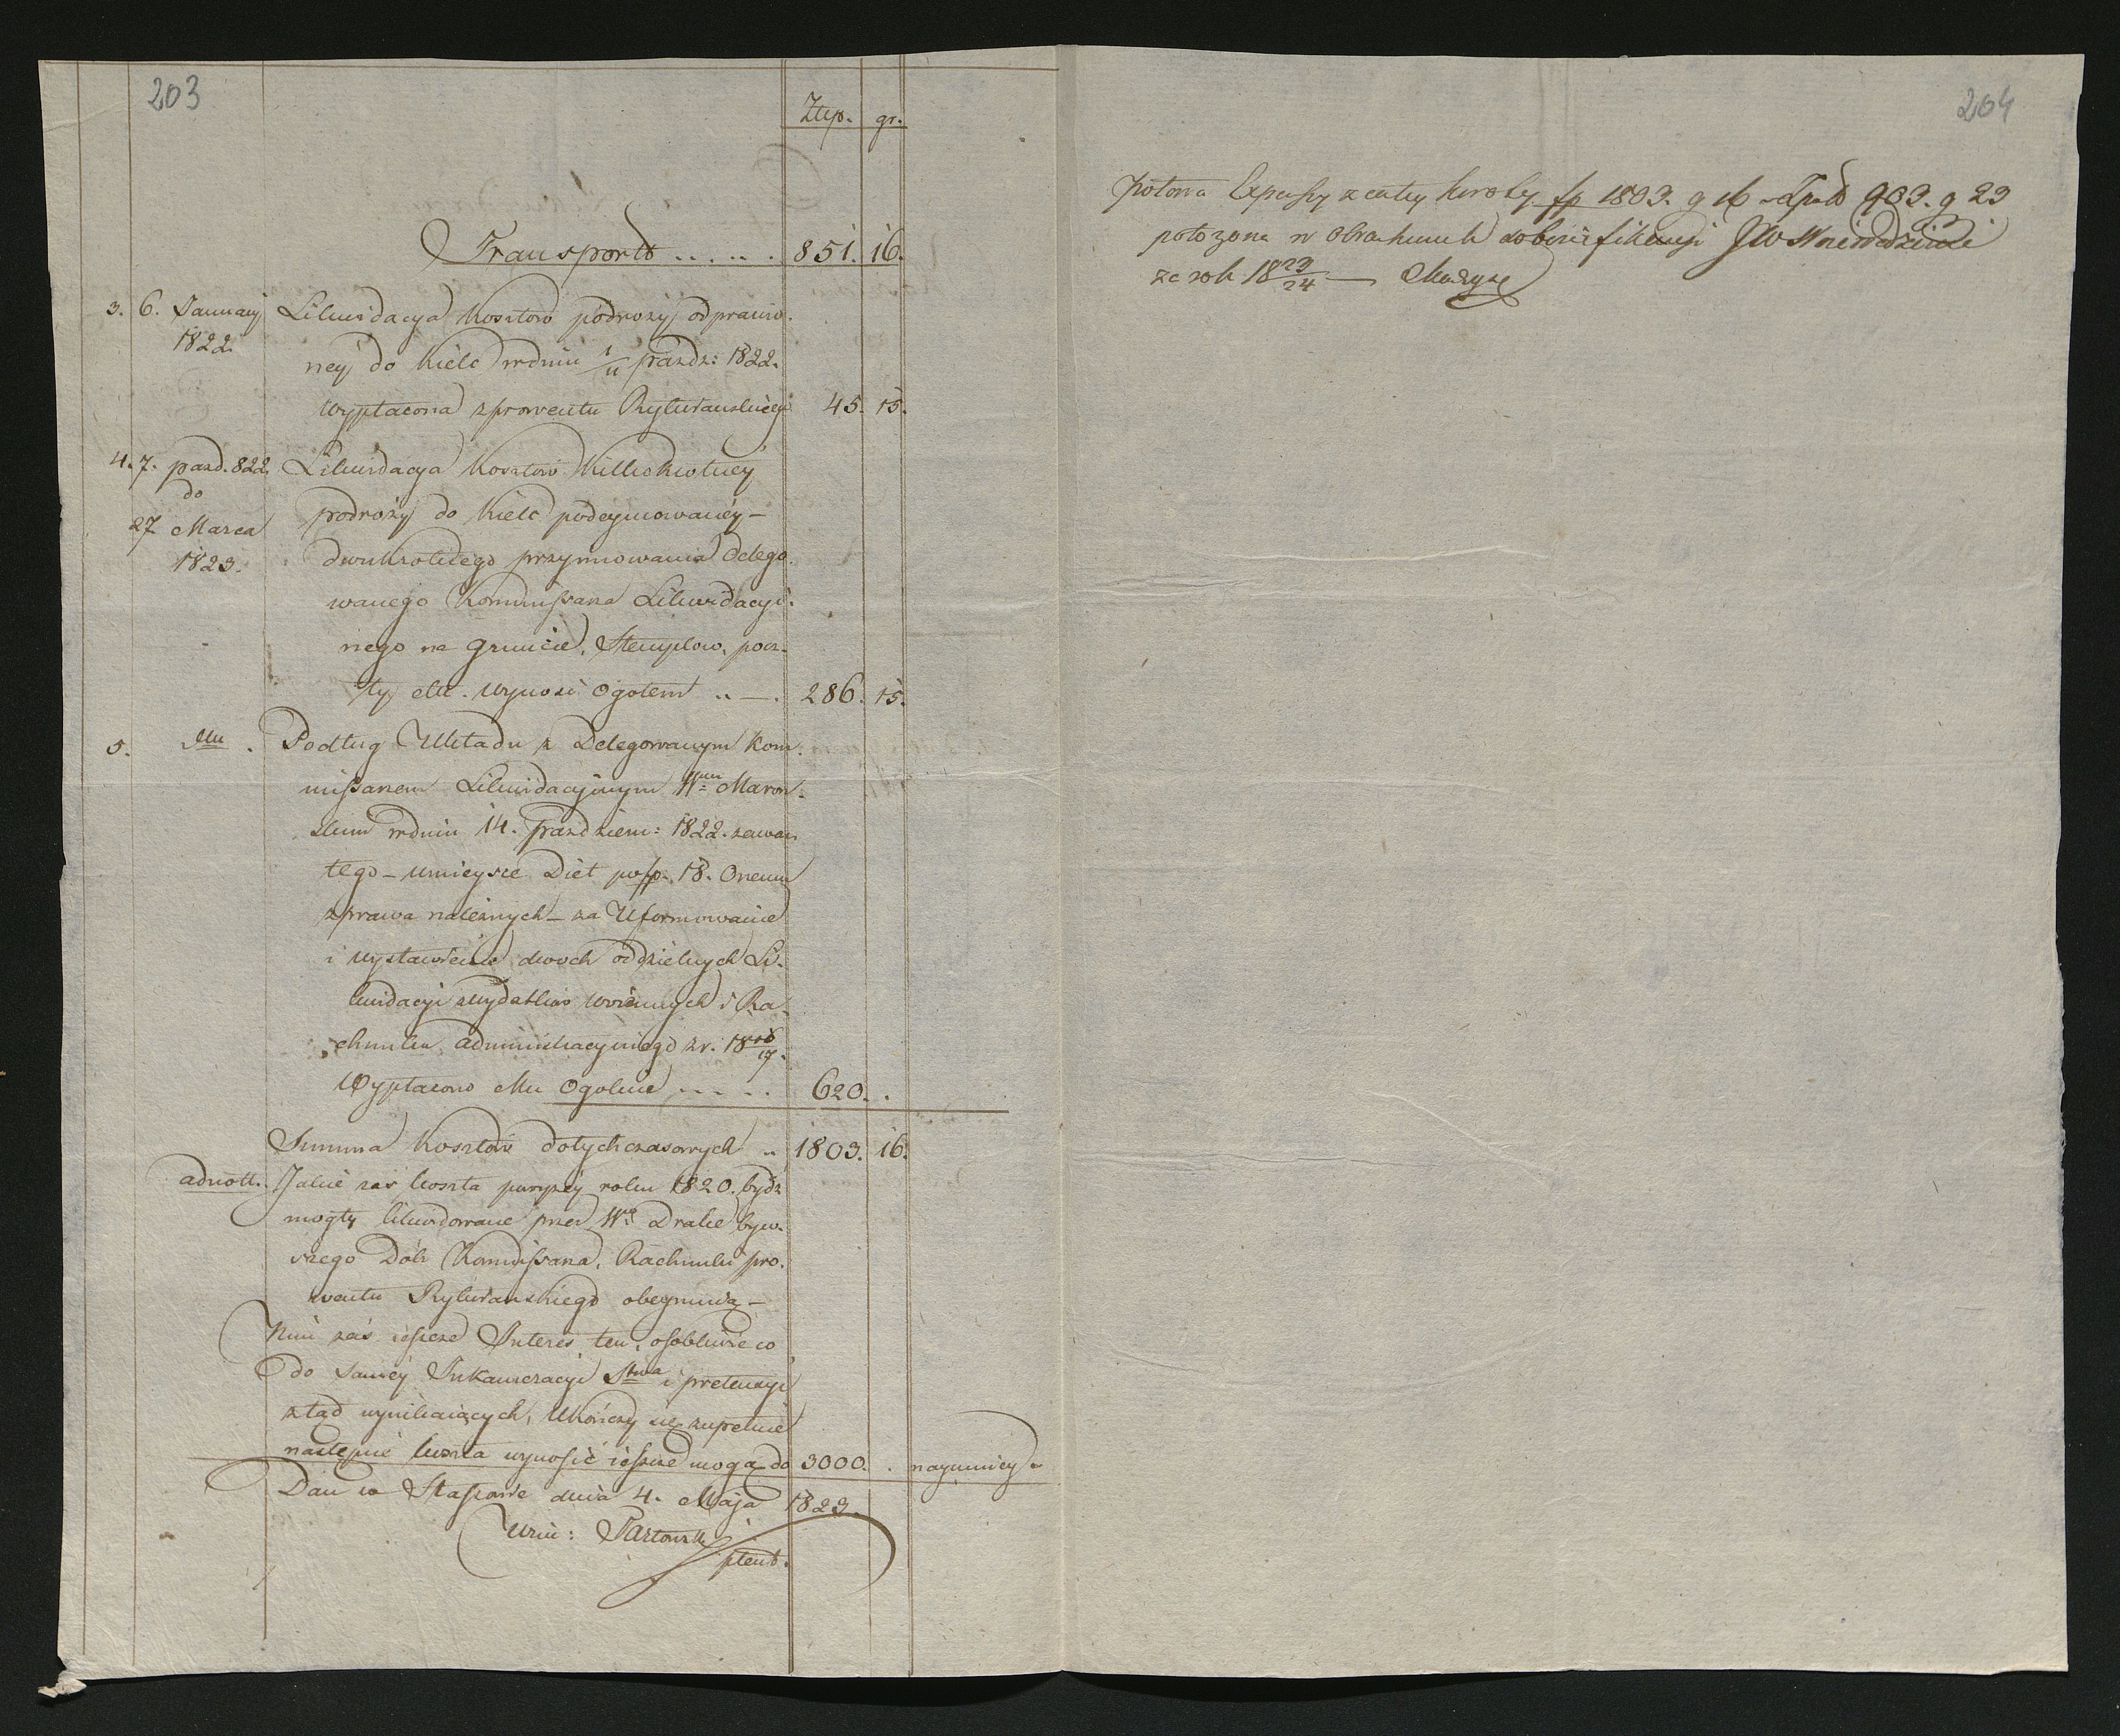 203
Ztp. gr.
Transport ..... 851. 16.
3. 6. Januarij Likwidacya kosztow podroży odpraw-
1822 ney do Kielc w dniu 1/11 Pazdz: 1822.
wypłacona z prowentu Rytwianskiego 45. 15.
4. 7. pazd. 822 Likwidacya kosztow kilkokrotney
do podroży do Kielc podeymowaney –
27 Marca dwukrotnego przymowania Delego-
1823. wanego Kommissarza Likwidacyi-
nego na gruncie, Stemplow, pocz-
ty etc. wynosi ogołem .. — . 286. 15.
5. Podług Układu z Delegowanym Kom-
missarzem Likwidacyinym Wnym Marow-
skim w dniu 14. Pazdziern: 1822. zawar-
tego – w mieysce Diet po fp. 18. Onemu
z prawa należnych – za Uformowanie
i wystawienie dwoch oddzielnych Li-
kwidacyi z wydatkow woiennych i Ra-
chunku administracyinego z r. 18 16/17.
Wypłacono Mu Ogolnie ..... 620. .
Summa Kosztow dotychczasowych .. 1803. 16.
adnott. Jakie zaś koszta powyżey roku 1820. bydz
mogły likwidowane przez Wgo Drake byw-
szego Dobr Kommissarza, Rachunki pro-
wentu Rytwianskiego obeymuią –
Nim zaś ieszcze Interes ten, osobliwie co
do samey Inkameracyi Stwa i pretensyi
ztąd wynikaiących, Ukończy się zupełnie
następnie koszta wynosić ieszcze mogą do 3000. . naymniey
Dan w Staszowie dnia 4. Maja 1823.
plent.
204
połowa Expensy z całey kwoty fp 1803. g 16 903. g 23
położona w Obrachunku JW
za rok 18 23/24 —